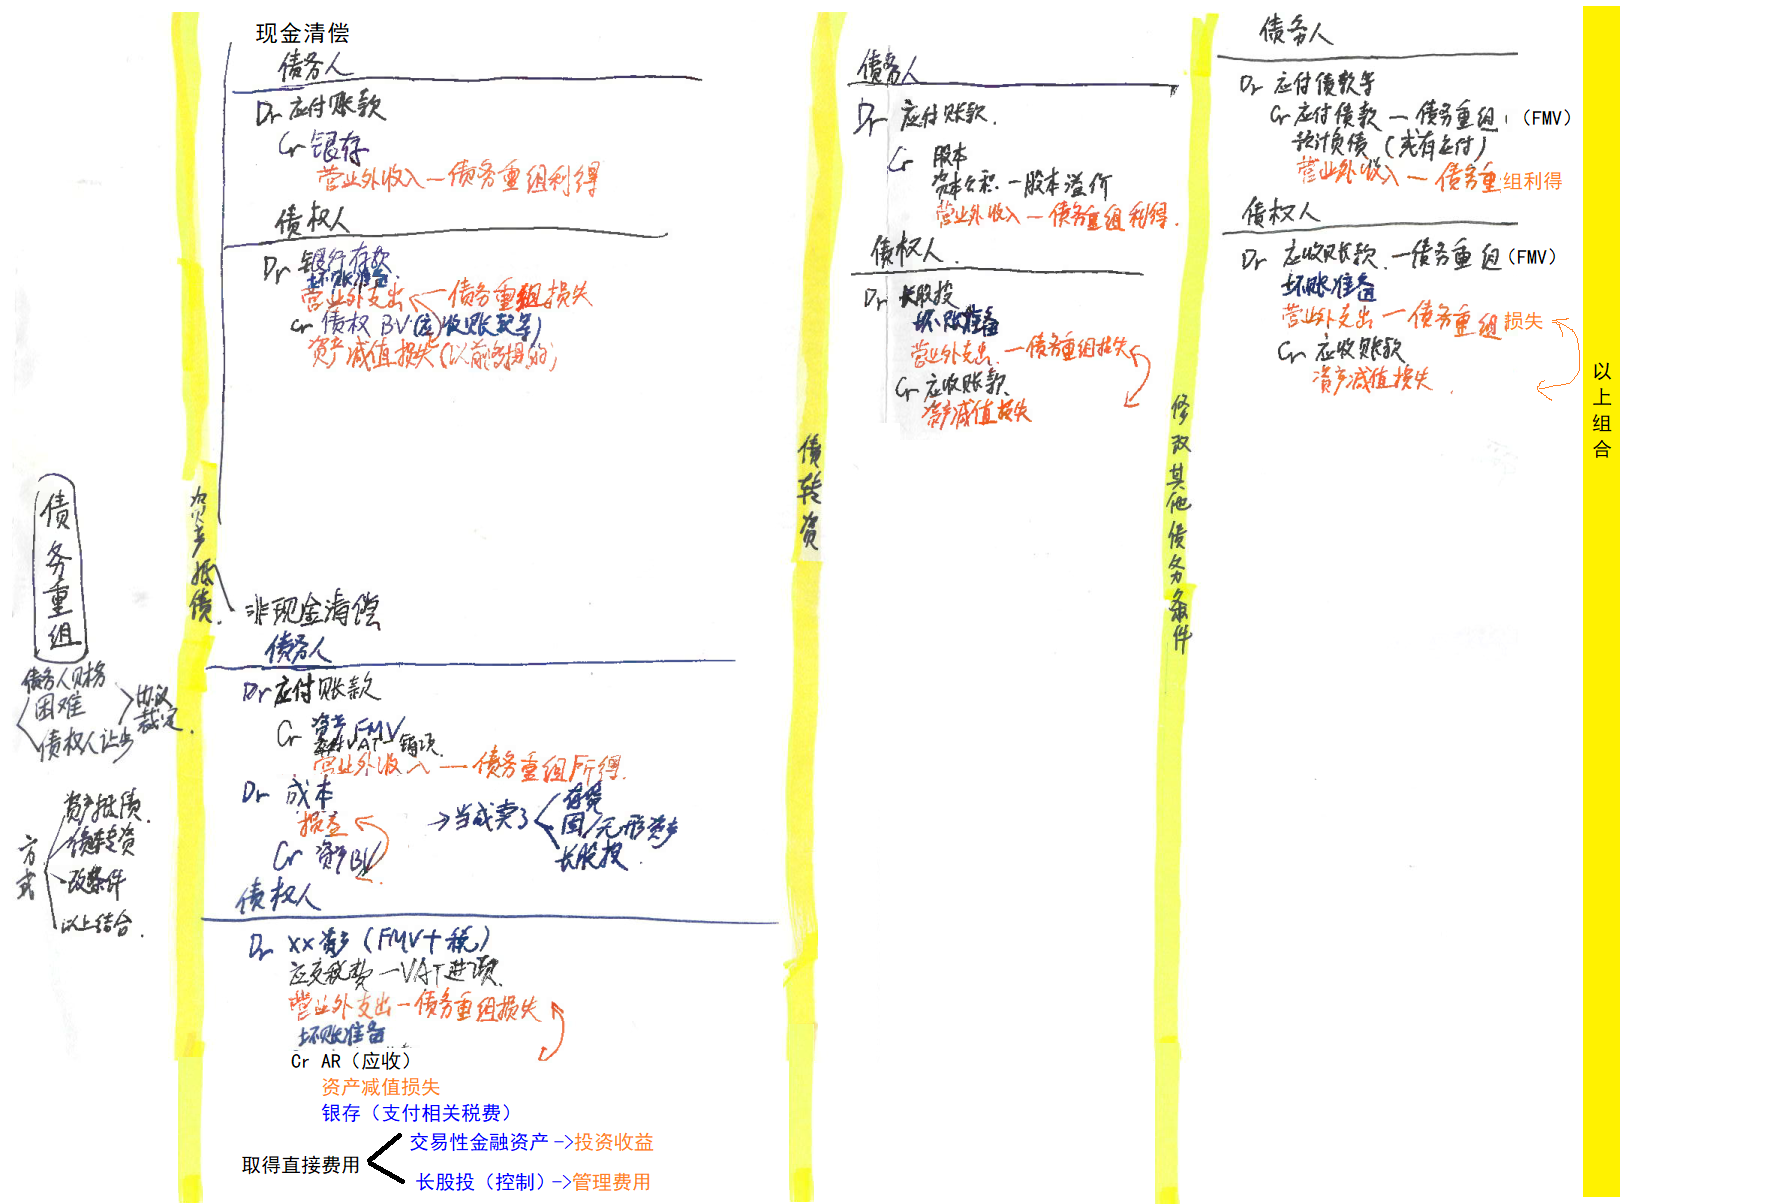 债务重组
债务人财务
困难
债权人让步
协议
裁定.
方式
资产抵债.
债转资
改条件
以上结合.
资产抵债.
现金清偿
债务人
Dr 应付账款
Cr 银存
营业外收入—债务重组利得
债权人
Dr 银行存款
坏账准备
营业外支出—债务重组损失
Cr 债权 BV (应收账款等)
资产减值损失(以前多提的)
非现金清偿
债务人
Dr 应付账款
Cr 资产 FMV
VAT—销项
营业外收入—债务重组所得.
Dr 成本
损益
Cr 资产BV
→当成卖了
存货
固/无形资产
长股投.
债权人
Dr XX资产 (FMV+税)
应交税费—VAT进项
营业外支出—债务重组损失
坏账准备
Cr AR（应收）
资产减值损失
银存（支付相关税费）
取得直接费用
交易性金融资产->投资收益
长股投（控制）->管理费用
债转资
债务人
Dr 应付账款.
Cr 股本
资本公积—股本溢价
营业外收入—债务重组利得.
债权人.
Dr 长股投
坏账准备
营业外支出.—债务重组损失
Cr 应收账款.
资产减值损失
修改其他债务条件
债务人
Dr 应付债款等
Cr 应付债款—债务重组（FMV）
预计负债 (或有应付)
营业外收入—债务重组利得
债权人
Dr 应收账款.—债务重组（FMV）
坏账准备
营业外支出—债务重组损失
Cr 应收账款
资产减值损失.
以上组合